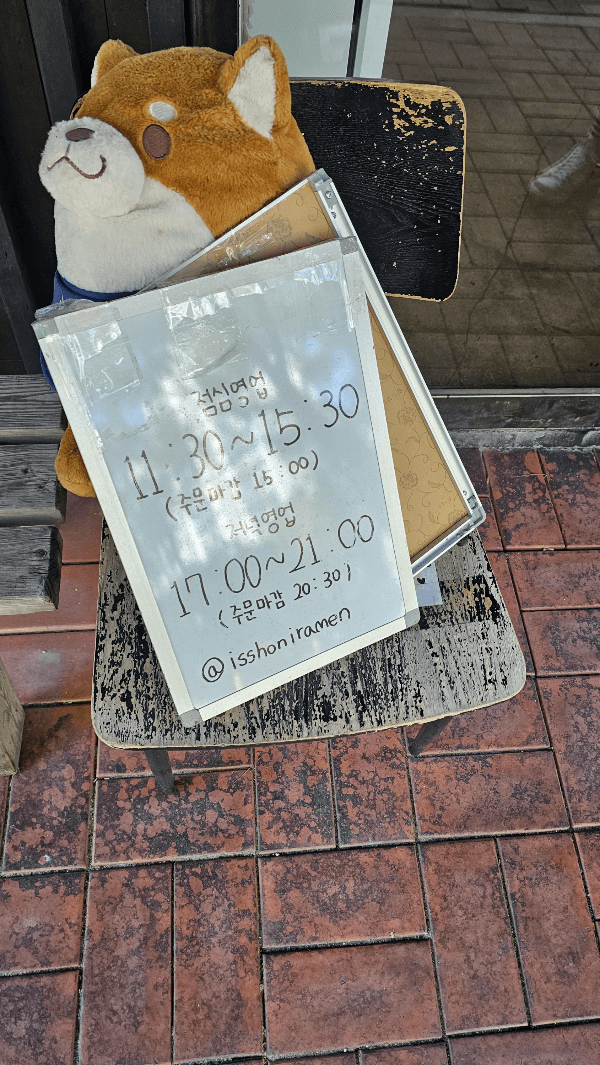 점심영업
11:30~15:30
(주문마감 15:00)
저녁영업
17:00~21:00
(주문마감 20:30)
@isshoniramen